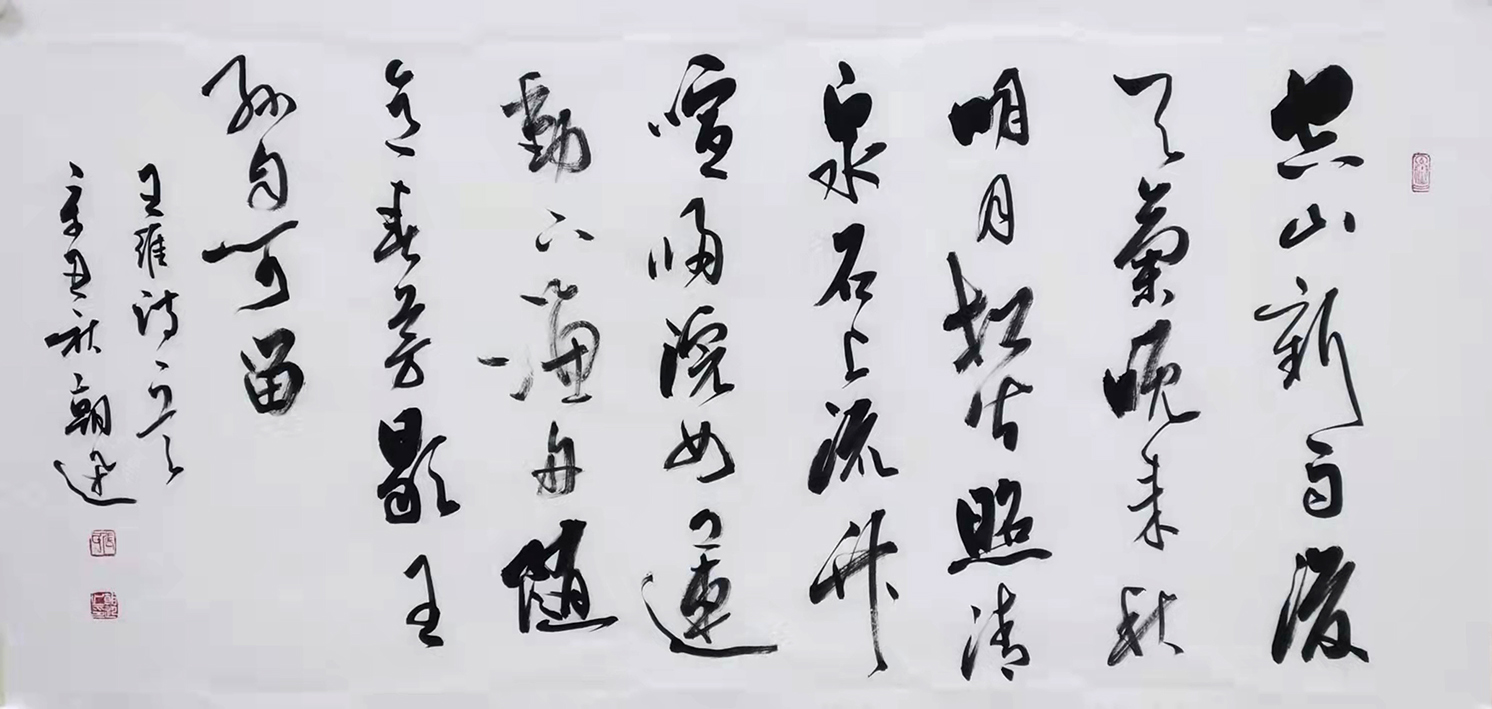 空山新雨後
天氣晚来秋
明月松间照清
泉石上流竹
喧歸浣女蓮
動下漁舟随
意春芳歇王
孫自可留
王維诗一首
辛丑秋朝迅